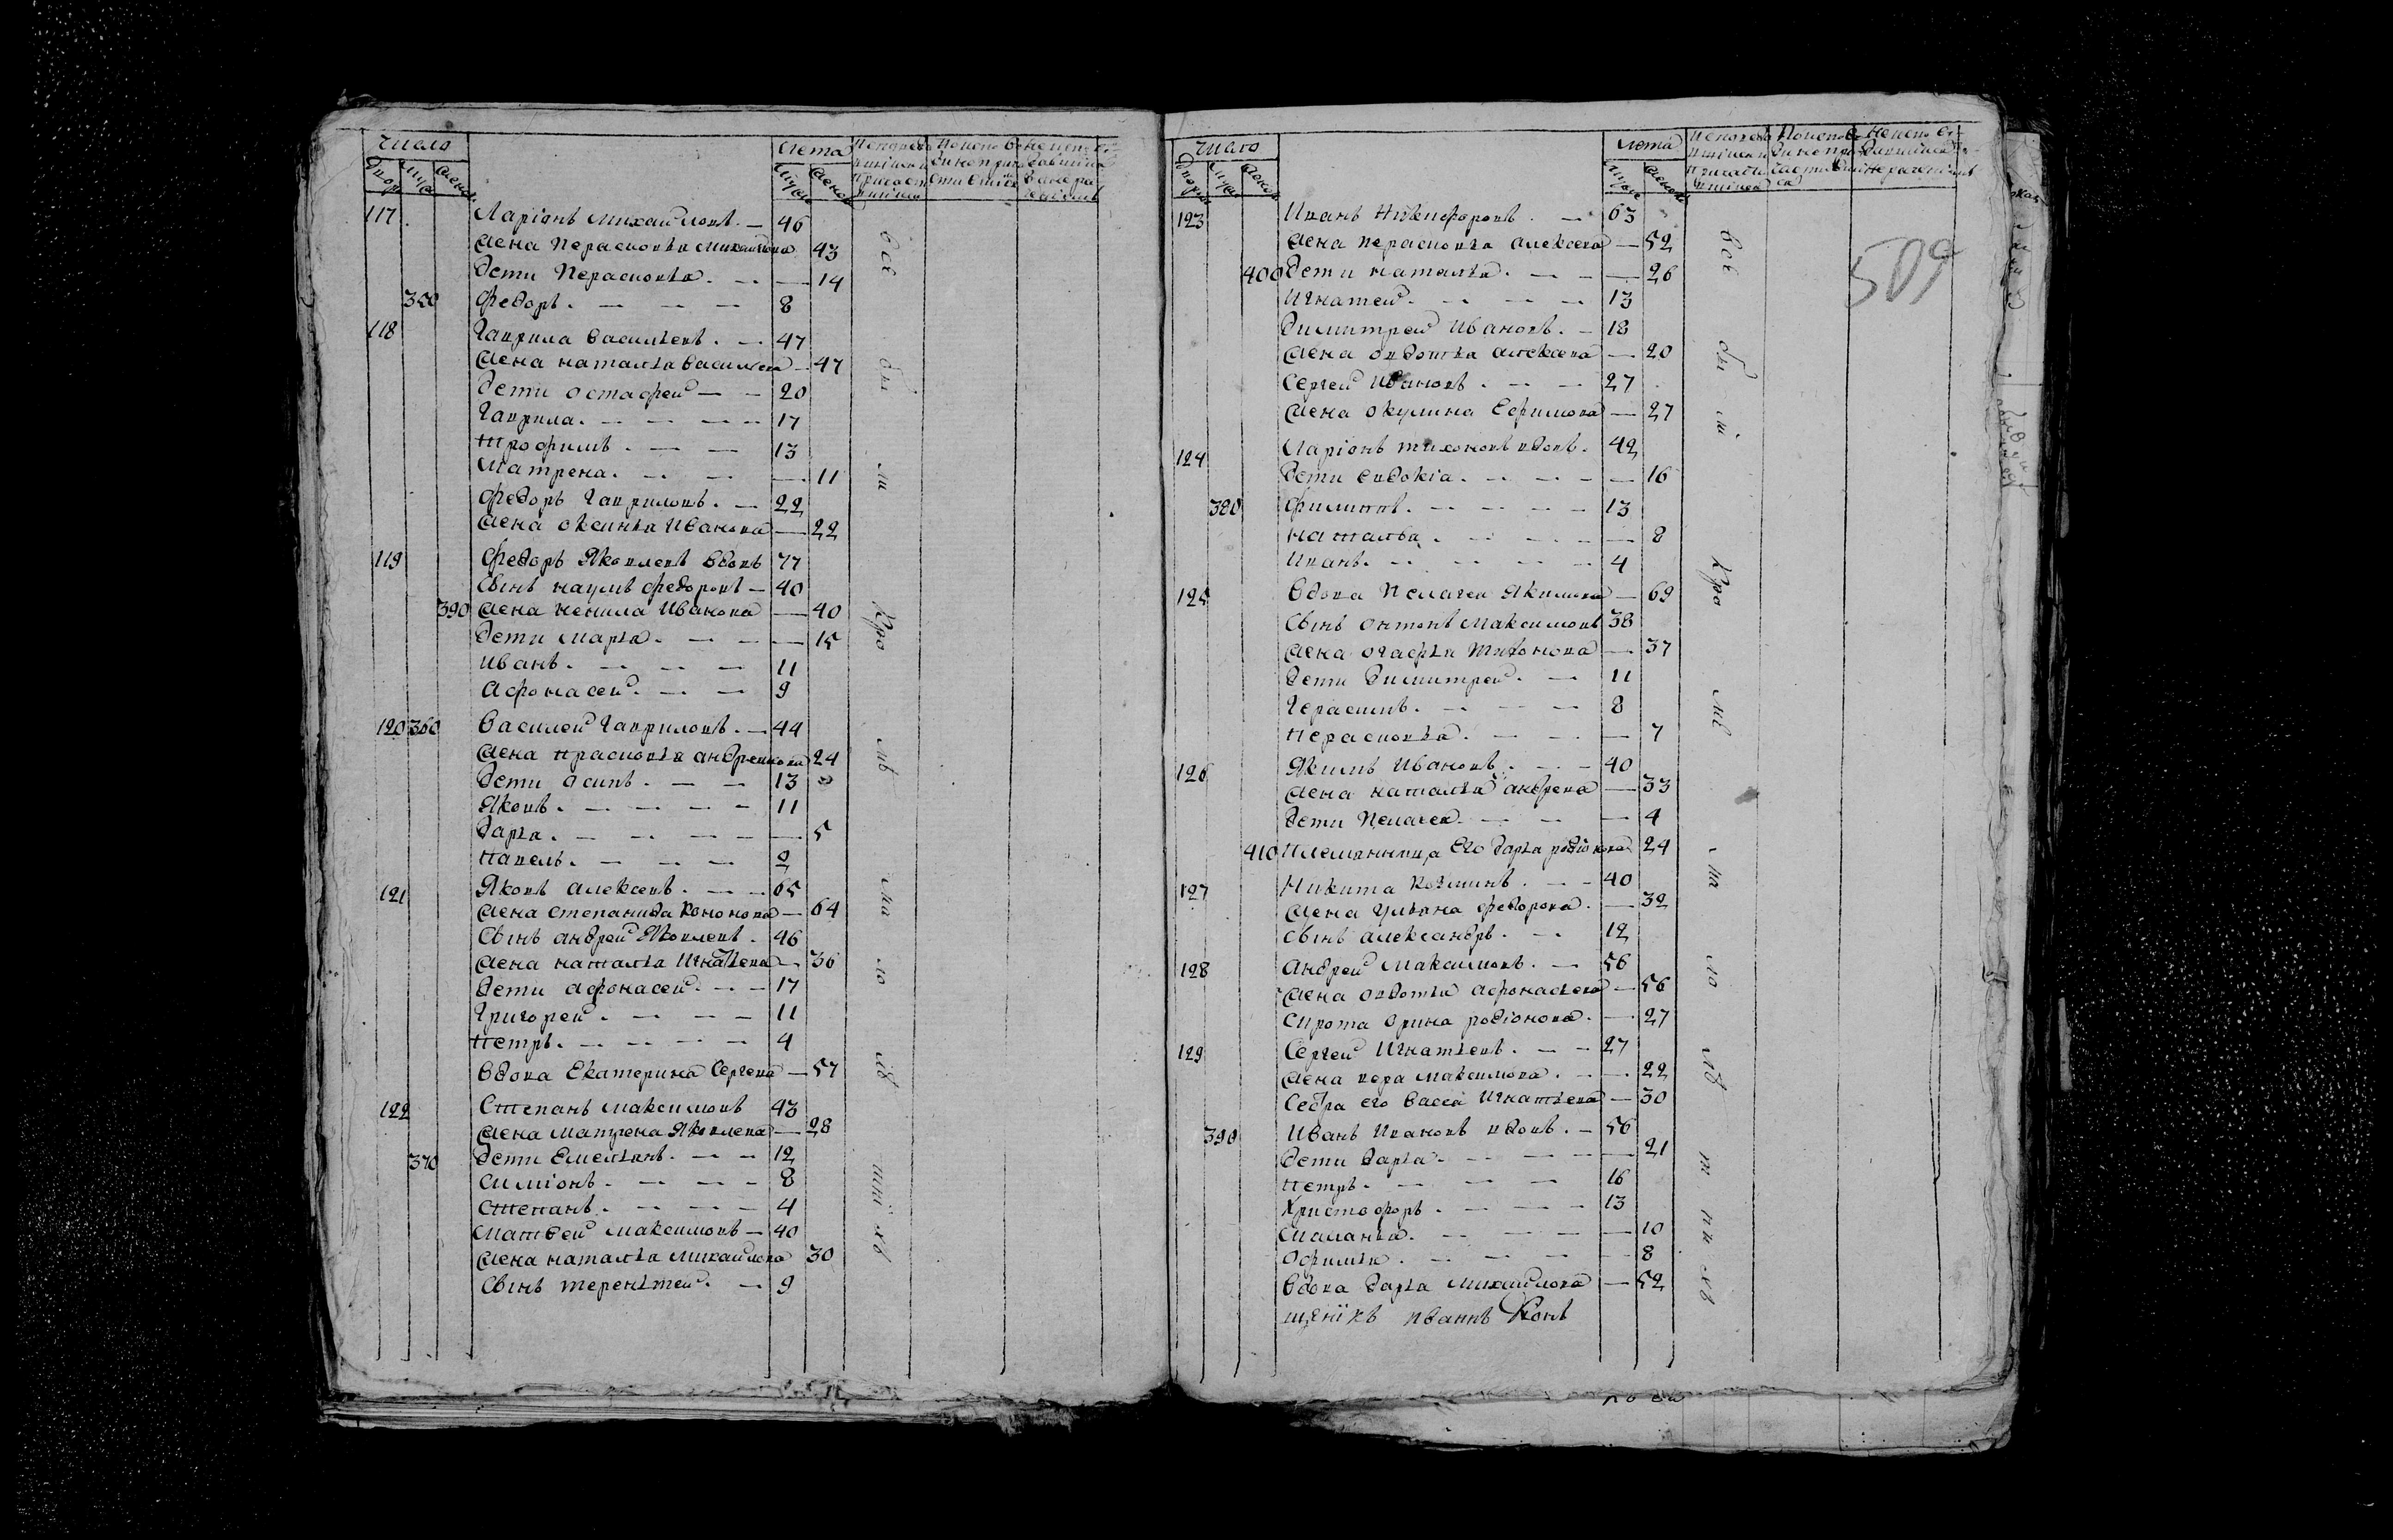 Число
Лета
Двор Муж Женск
Муж Женск
117 Ларіонъ Михайловъ 46
Жена Парасковья Михайлова 43
Дети Парасковья 14
350 Федоръ 8
118 Гаврила Васильевъ 47
Жена Наталья Васильева 47
Дети Остафей 20
Гаврила 17
Трофимъ 13
Матрена 11
Федоръ Гавриловъ 22
Жена Оксинья Иванова 22
119 Федоръ Яковлевъ вдовъ 77
Сынъ Наумъ Федоровъ 40
390 Жена Ненила Иванова 40
Дети Марья 15
Иванъ 11
Афонасей 9
120 360 Василей Гавриловъ 44
Жена Прасковья Андреянова 24
Дети Осипъ 13
Яковъ 11
Дарья 5
Павелъ 2
121 Яковъ Алексеевъ 65
Жена Степанида Кононова 64
Сынъ Андрей Яковлевъ 46
Жена Наталья Игнатьева 36
Дети Афонасей 17
Григорей 11
Петръ 4
Вдова Екатерина Сергева 57
122 Степанъ Максимовъ 43
Жена Матрена Яковлева 28
370 Дети Емельянъ 12
Симіонъ 8
Степанъ 4
Матвей Максимовъ 40
Жена Наталья Михайлова 30
Сынъ Терентей 9
Число
Лета
Двор Муж Женск
Муж Женск
509
123 Иванъ Никифоровъ 63
Жена Парасковья Алексева 52
400 Дети Наталья 26
Игнатей 13
Димитрей Ивановъ 18
Жена Овдотья Алексева 20
Сергей Ивановъ 27
Жена Окулина Ефимова 27
124 Ларіонъ Тихоновъ вдовъ 42
Дети Евдокіа 16
380 Филиппъ 13
Наталья 8
Иванъ 4
125 Вдова Пелагея Якимова 69
Сынъ Онтонъ Максимовъ 38
Жена Огафья Тихонова 37
Дети Димитрей 11
Герасимъ 8
Парасковья 7
126 Якимъ Ивановъ 40
Жена Наталья Андреева 33
Дети Пелагея 4
410 Племянница Его Дарья Родіонова 24
127 Никита Козминъ 40
Жена Ульяна Федорова 32
Сынъ Александръ 12
128 Андрей Максимовъ 56
Жена Овдотья Афонасьева 56
Сирота Орина Родіонова 27
129 Сергей Игнатьевъ 27
Жена Вера Максимова 22
Сестра его Васса Игнатьева 30
390 Иванъ Ивановъ вдовъ 56
Дети Дарья 21
Петръ 16
Христофоръ 13
Маланья 10
Офимья 8
Вдова Дарья Михайлова 52
щеникъ Иваннъ